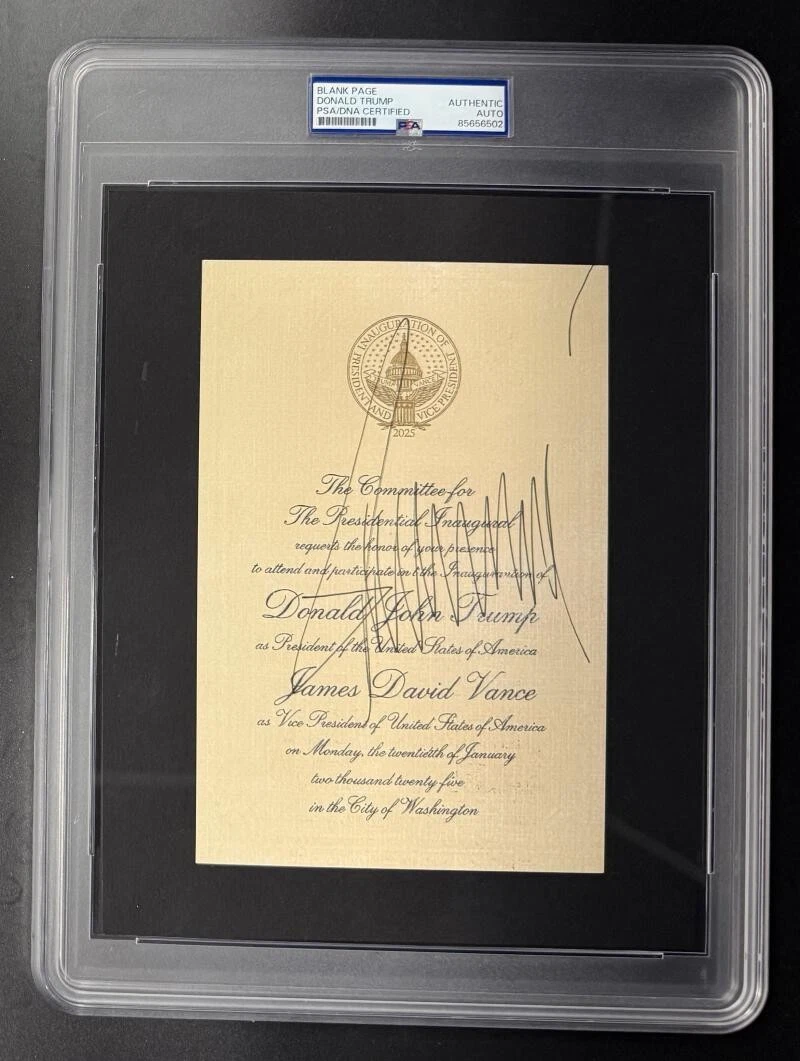 BLANK PAGE
DONALD TRUMP
PSA/DNA CERTIFIED
AUTHENTIC
AUTO
85656502
PSA
INAUGURATION OF PRESIDENT AND VICE PRESIDENT
TRUMP VANCE
2025
The Committee for
The Presidential Inaugural
requests the honor of your presence
to attend and participate in t the Inauguration of
Donald John Trump
as President of the United States of America
James David Vance
as Vice President of United States of America
on Monday, the twentietth of January
two thousand twenty-five
in the City of Washington